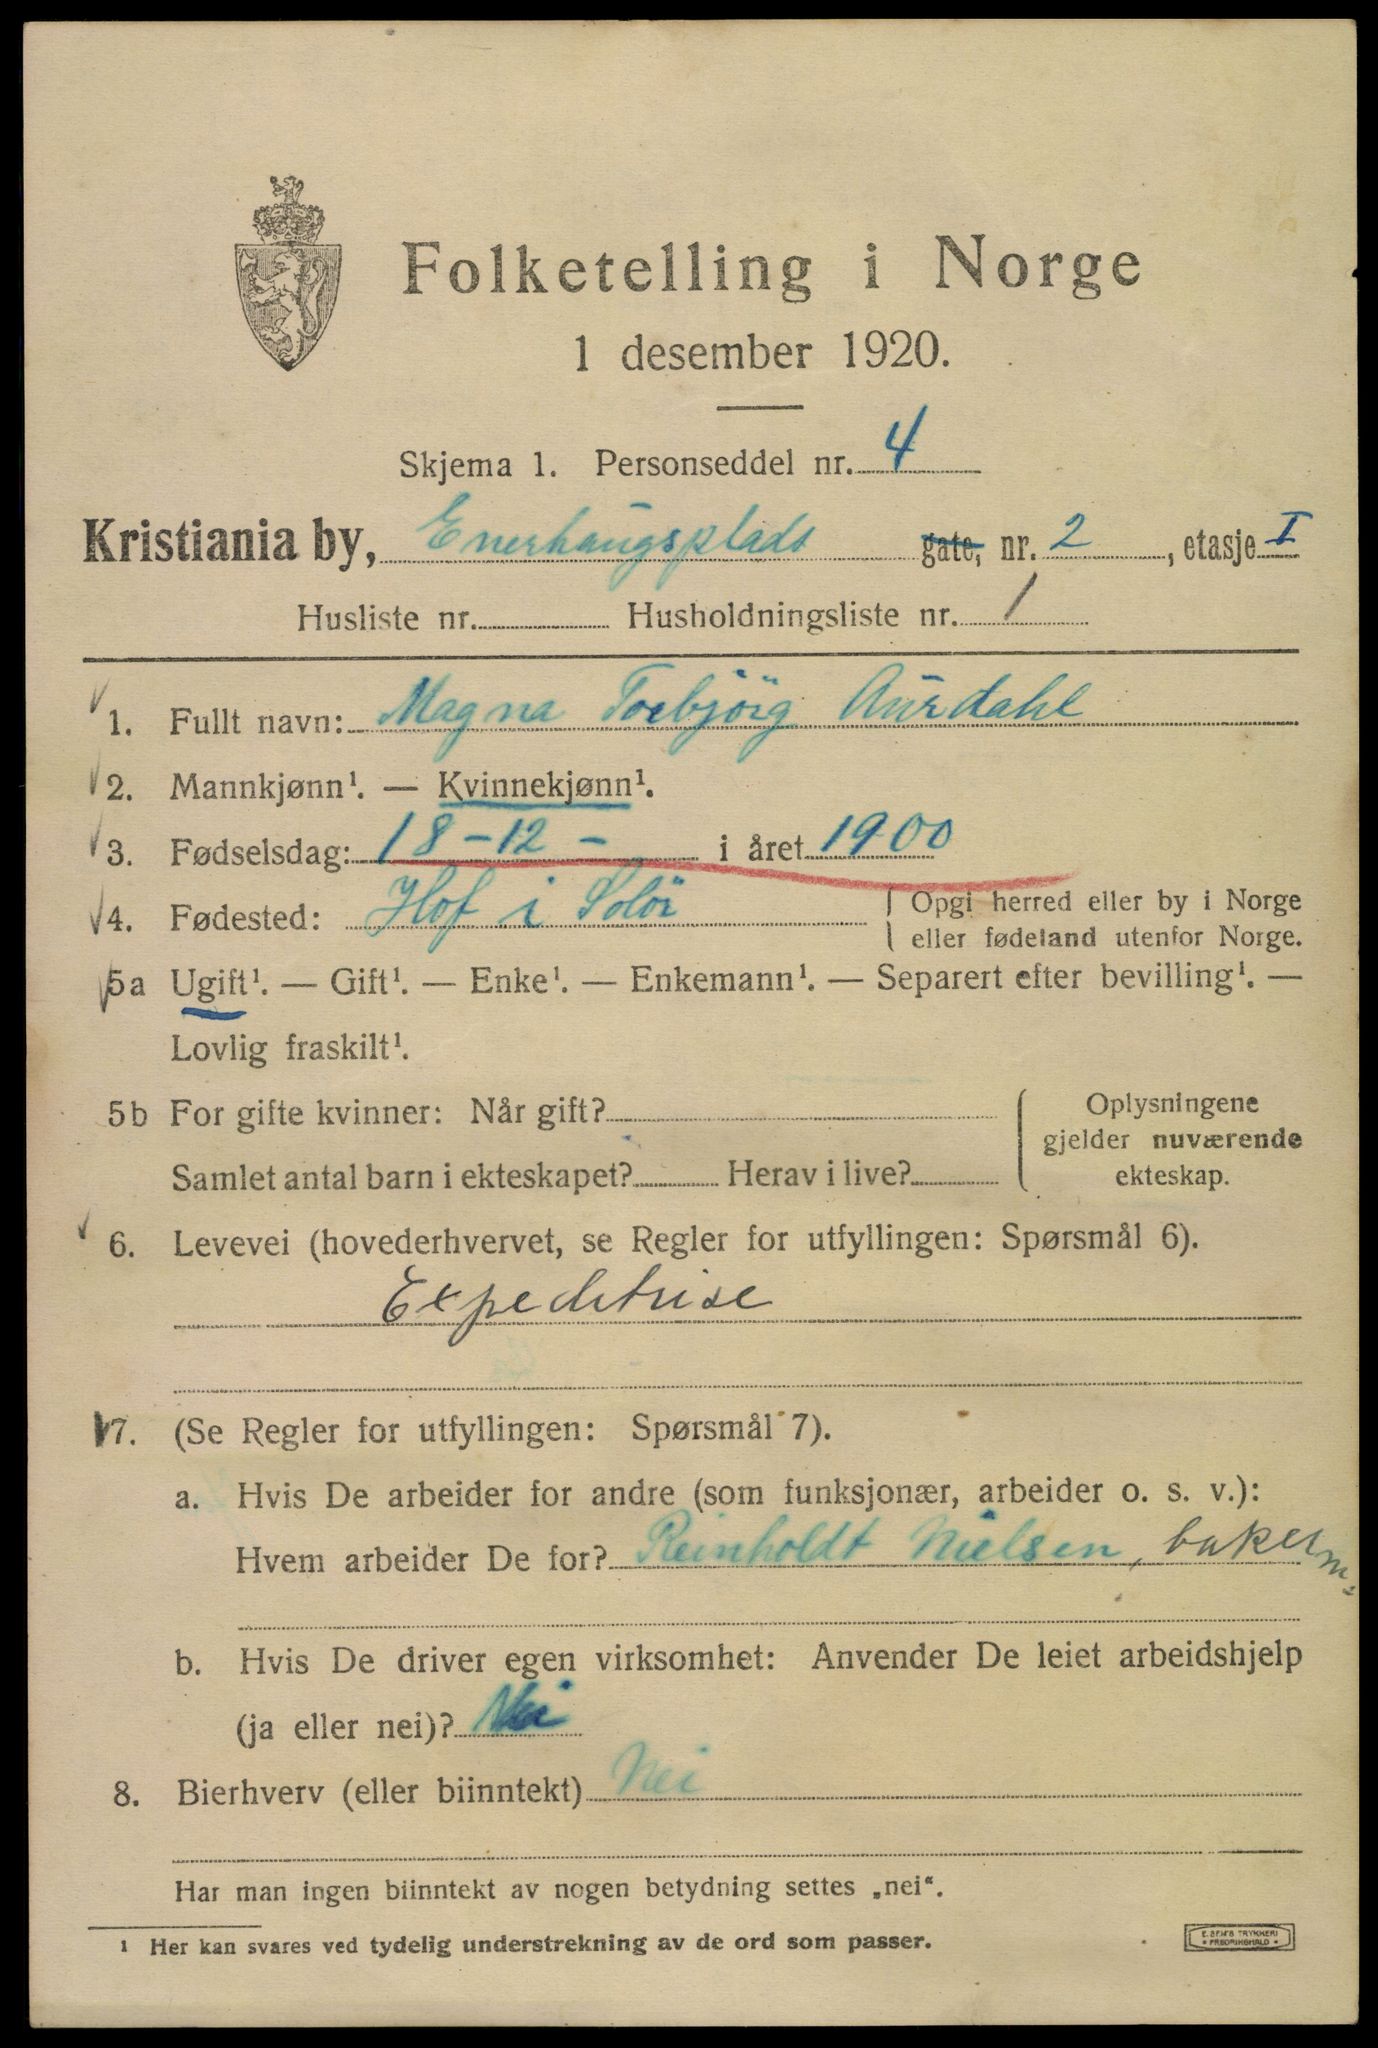 Folketelling i Norge
1 desember 1920.
Skjema 1. Personseddel nr. 4
Kristiania by, Enerhaugsplads gate, nr. 2, etasje I
Husliste nr. Husholdningsliste nr. 1
1. Fullt navn: Magna Torbjörg Aurdahl
2. Mannkjønn¹. — Kvinnekjønn¹.
3. Fødselsdag: 18-12- i året 1900
4. Fødested: Hof i Solör { Opgi herred eller by i Norge
eller fødeland utenfor Norge.
5a Ugift¹. — Gift¹. — Enke¹. — Enkemann¹. — Separert efter bevilling¹. —
Lovlig fraskilt¹.
5b For gifte kvinner: Når gift?
Samlet antal barn i ekteskapet? Herav i live?
Oplysningene
gjelder nuværende
ekteskap.
6. Levevei (hovederhvervet, se Regler for utfyllingen: Spørsmål 6).
Expeditrise
7. (Se Regler for utfyllingen: Spørsmål 7).
a. Hvis De arbeider for andre (som funksjonær, arbeider o. s. v.):
Hvem arbeider De for? Reinholdt Nielsen, bakerm.
b. Hvis De driver egen virksomhet: Anvender De leiet arbeidshjelp
(ja eller nei)? Nei
8. Bierhverv (eller biinntekt) Nei
Har man ingen biinntekt av nogen betydning settes „nei“.
1 Her kan svares ved tydelig understrekning av de ord som passer.
E. SEM'S TRYKKERI
* FREDRIKSHALD *